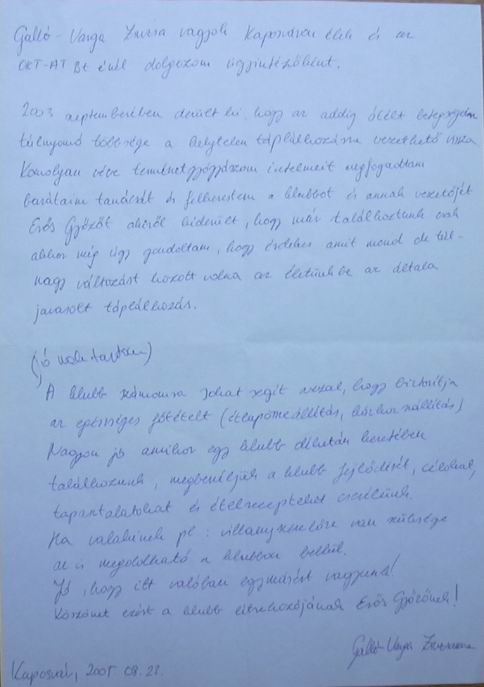 Galló-Varga Zsuzsa vagyok Kaposváron élek és az
OKT-AT Bt-énél dolgozom ügyintézőként.
2003 szeptemberében derült ki, hogy az addig átélt betegségeim
túlnyomó többsége a helytelen táplálkozásra vezethető vissza.
Komolyan véve természetgyógyászom intelmeit megfogadtam
barátaim tanácsát és felkerestem a klubbot és annak vezetőjét
Erős Győzőt akiről kiderült, hogy már találkoztunk csak
akkor még úgy gondoltam, hogy érdekes amit mond de túl-
nagy változást hozott volna az életünkbe az általa
javasolt táplálkozás.
A klubb számomra sokat segít azzal, hogy biztosítja
az egészséges főételt (étlapösszeállítás, házhozszállítás)
Nagyon jó amikor egy klubb délután keretében
találkozunk, megbeszéljük a klubb fejlődését, céljait,
tapasztalatokat és ételrecepteket cserélünk.
Ha valakinek pl: villanyszerelőre van szüksége
az is megoldható a klubbon belül.
Jó, hogy itt valóban egymásért vagyunk!
Köszönet ezért a klubb létrehozójának Erős Győzőnek!
Galló-Varga Zsuzsanna
Kaposvár, 2005. 08. 23.